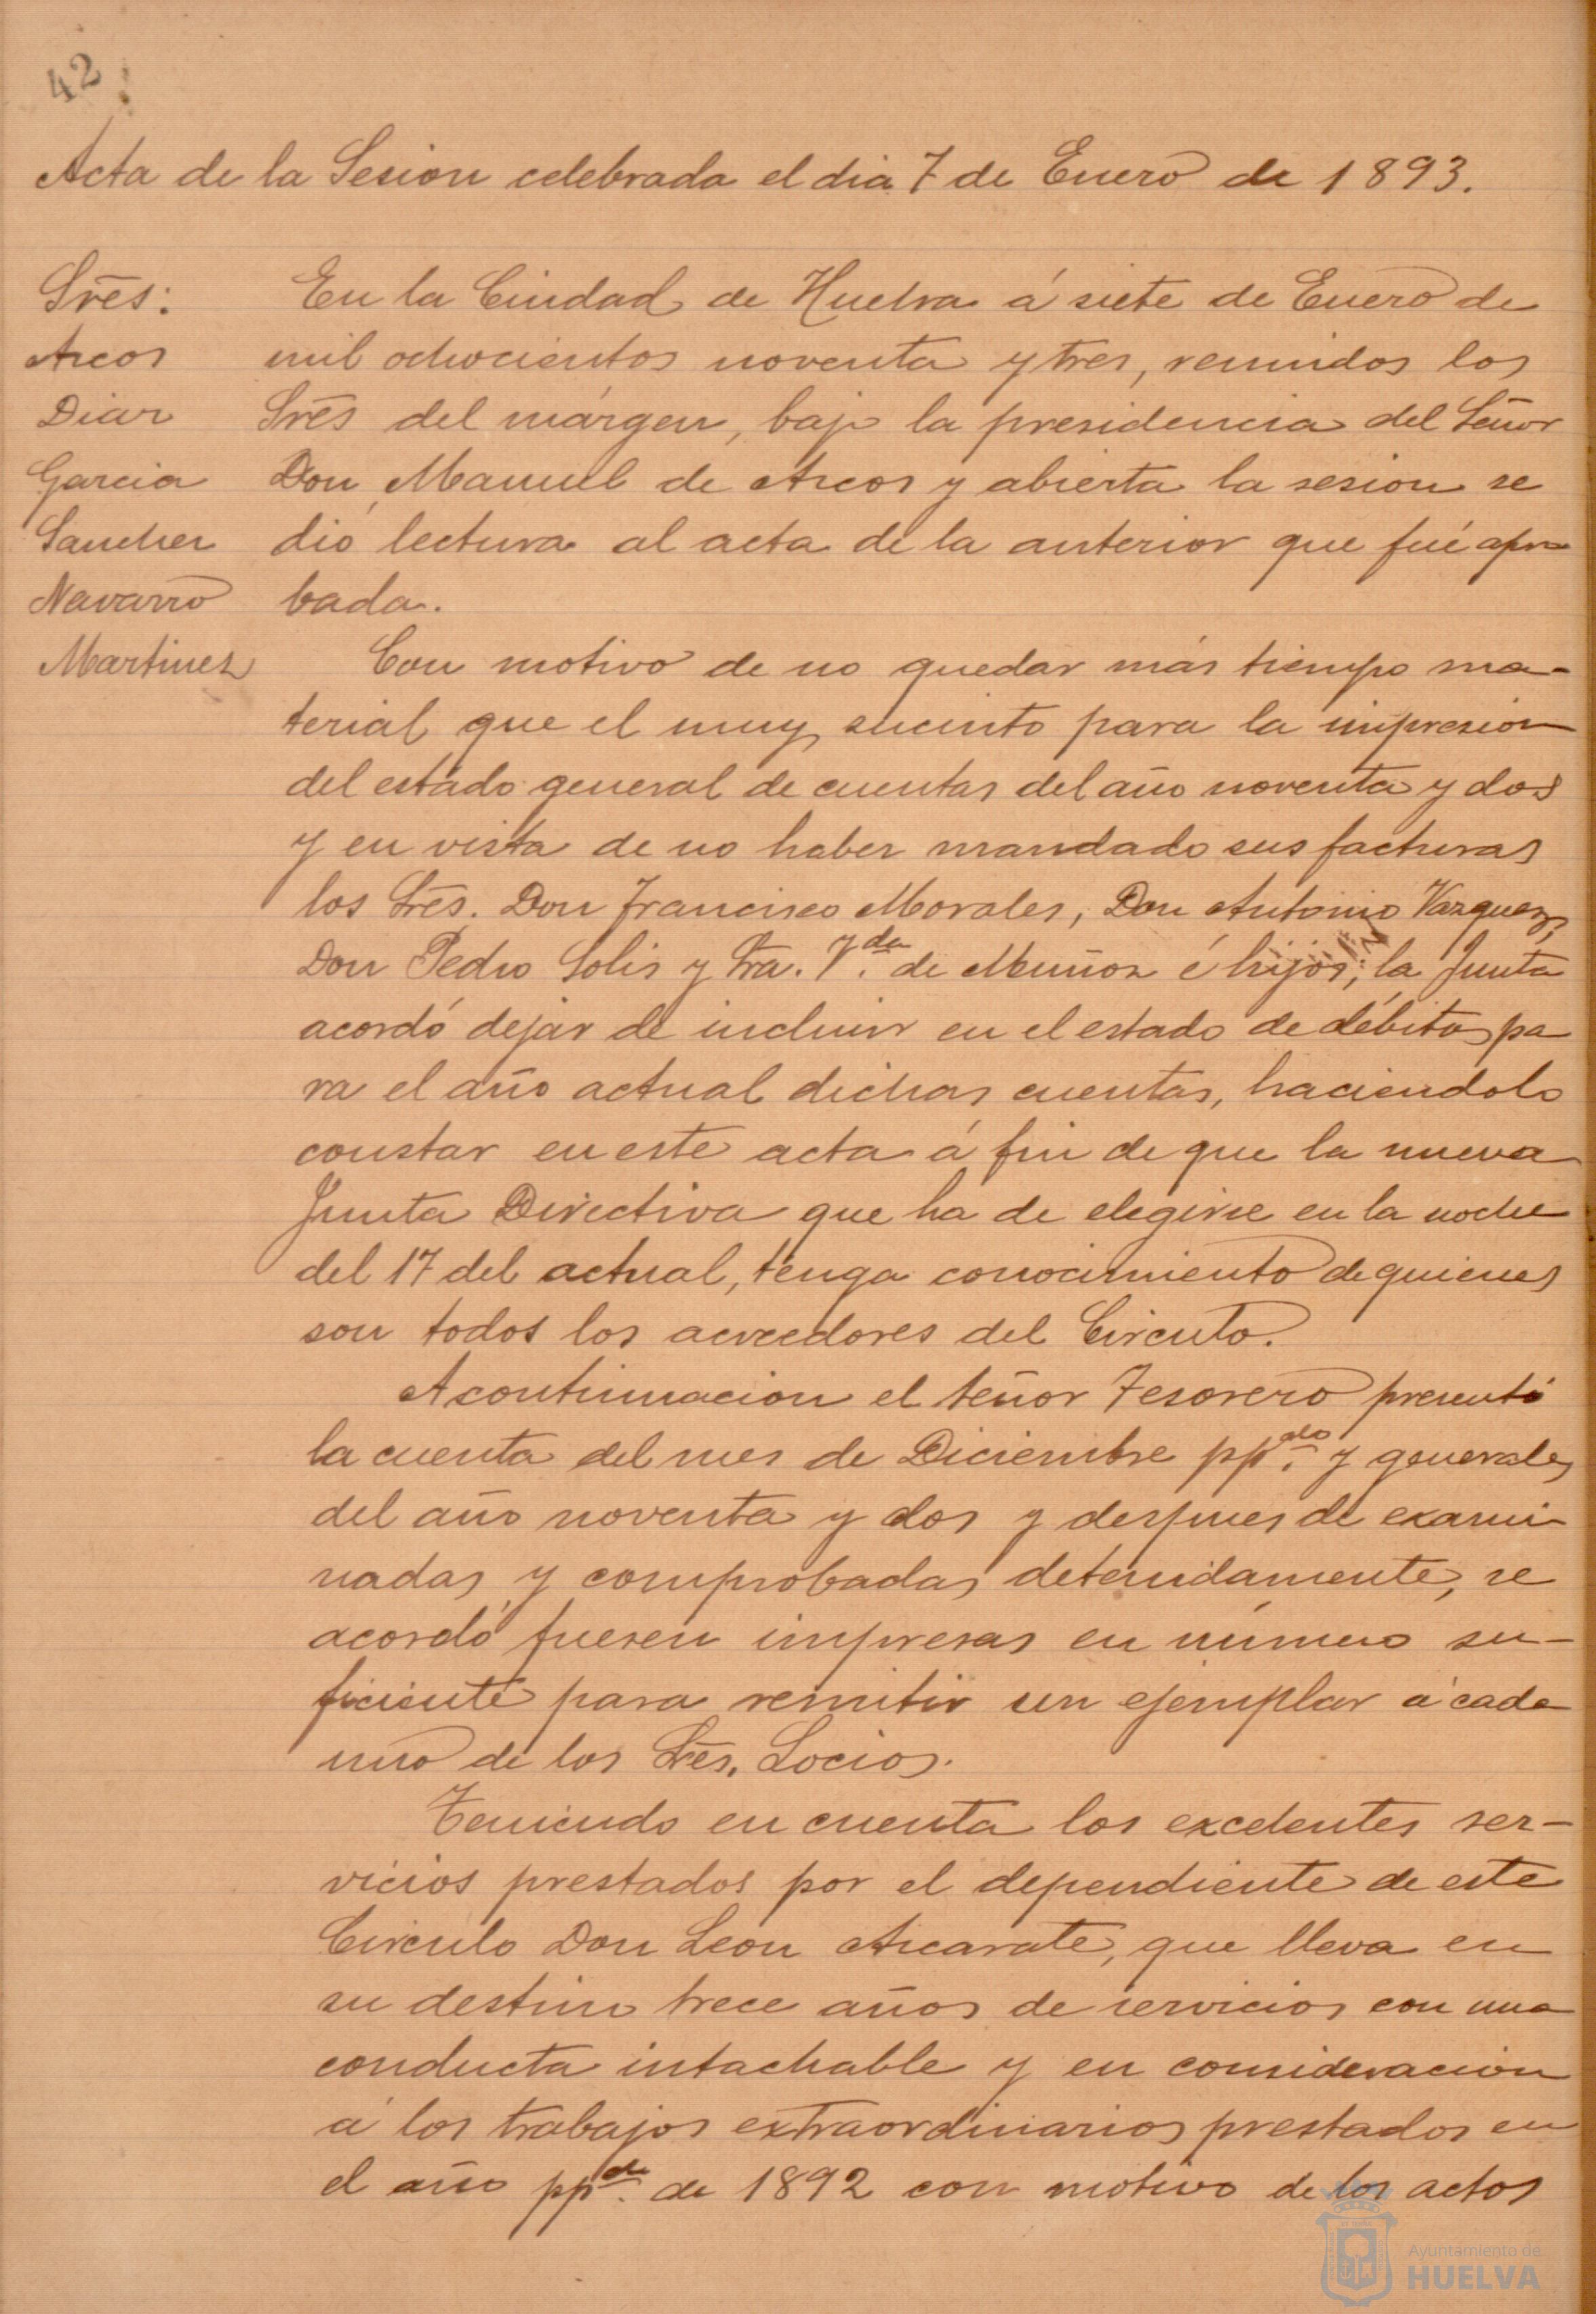 42
Acta de la Sesion celebrada el dia 7 de Enero de 1893.
Srẽs:
Arcos
Diaz
Garcia
Sanchez
Navarro
Martinez
En la Ciudad de Huelva á siete de Enero de
mil ochocientos noventa y tres, reunidos los
Srẽs del márgen, bajo la presidencia del Señor
Don Manuel de Arcos y abierta la sesion se
dió lectura al acta de la anterior que fué apro
bada.
Con motivo de no quedar más tiempo ma-
terial que el muy sucinto para la impresion
del estado general de cuentas del año noventa y dos
y en vista de no haber mandado sus facturas
los Srẽs. Don Francisco Morales, Don Antonio Vazquez,
Don Pedro Solis y Sra. Vda. de Muñoz é hijos; la Junta
acordó dejar de incluir en el estado de débitos pa
ra el año actual dichas cuentas, haciendolo
constar en este acta á fin de que la nueva
Junta Directiva que ha de elegirse en la noche
del 17 del actual, tenga conocimiento de quienes
son todos los acreedores del Circulo.
A continuacion el Señor Tesorero presentó
la cuenta del mes de Diciembre ppdo. y generales
del año noventa y dos y despues de exami
nadas y comprobadas detenidamente, se
acordó fuesen impresas en número su-
ficiente para remitir un ejemplar á cada
uno de los Srẽs. Socios.
Teniendo en cuenta los excelentes ser-
vicios prestados por el dependiente de este
Circulo Don Leon Azcarate, que lleva en
su destino trece años de servicios con una
conducta intachable y en consideracion
á los trabajos extraordinarios prestados en
el año ppdo. de 1892 con motivo de los actos
Ayuntamiento de
HUELVA